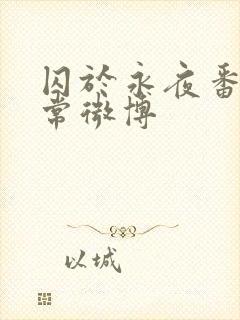 囚於永夜番
常微博
以城